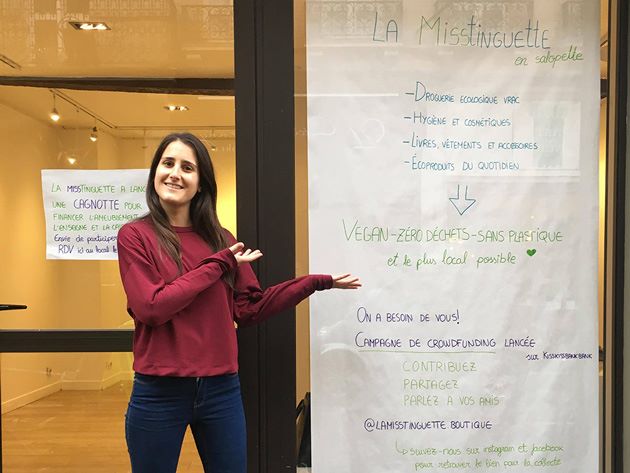 LA MISSTINGUETTE A LANC
UNE CAGNOTTE POUR
FINANCER L'AMEUBLEMENT
L'ENSEIGNE ET LA CA
Envie de participer
RDV ici au local le
LA MISSTINGUETTE
en salopette
-DROGUERIE ECOLOGIQUE VRAC
-HYGIÈNE ET COSMÉTIQUES
-LIVRES, VÊTEMENTS ET ACCESSOIRES
-ÉCOPRODUITS DU QUOTIDIEN
VEGAN-ZÉRO DÉCHETS-SANS PLASTIQUE
et le plus local possible
ON A BESOIN DE VOUS!
CAMPAGNE DE CROWDFUNDING LANCÉE
sur KISSKISSBANKBANK
CONTRIBUEZ
PARTAGEZ
PARLEZ A VOS AMIS
@LAMISSTINGUETTE BOUTIQUE
SUIVEZ-NOUS sur instagram et facebook
pour retrouver le lien pour la collecte